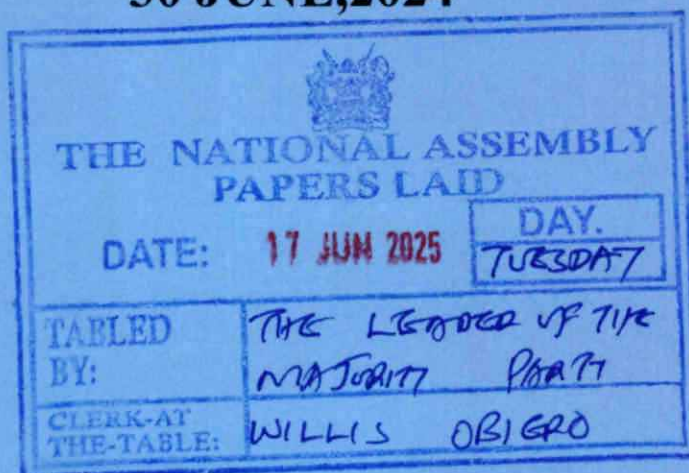 30 JUNE,2024
THE NATIONAL ASSEMBLY
PAPERS LAID
DATE: 17 JUN 2025
DAY.
TUESDAY
TABLED BY: THE LEADER OF THE
MAJORITY PARTY
CLERK-AT THE-TABLE: WILLIS OBIERO